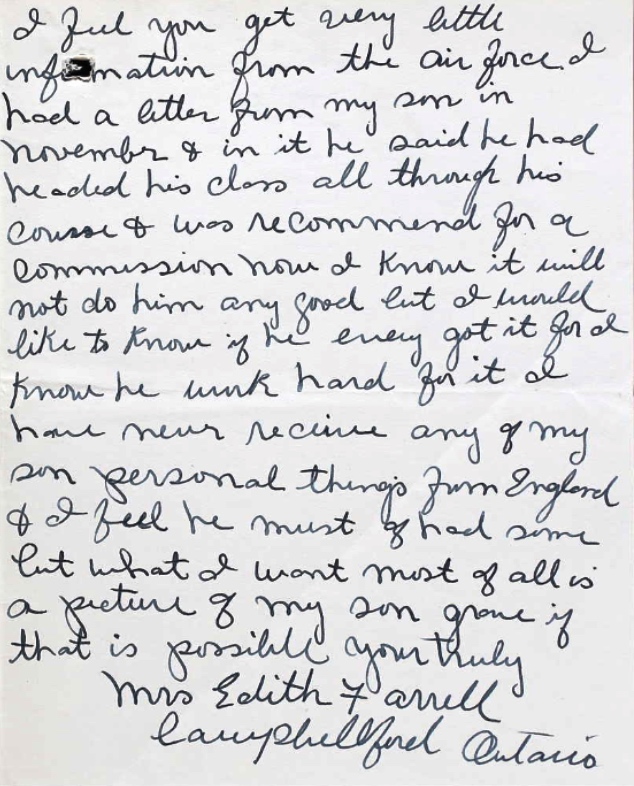 I feel you get very little
inf mation from the air force I
had a letter from my son in
November & in it he said he had
headed his class all through his
course & was recommend for a
commission now I know it will
not do him any good but I would
like to know if he every got it for I
know he work hard for it I
have never receive any of my
son personal things from England
& I feel he must of had some
but what I want most of all is
a picture of my son grave if
that is possible your truly
Mrs Edith Farrell
Campbellford Ontario